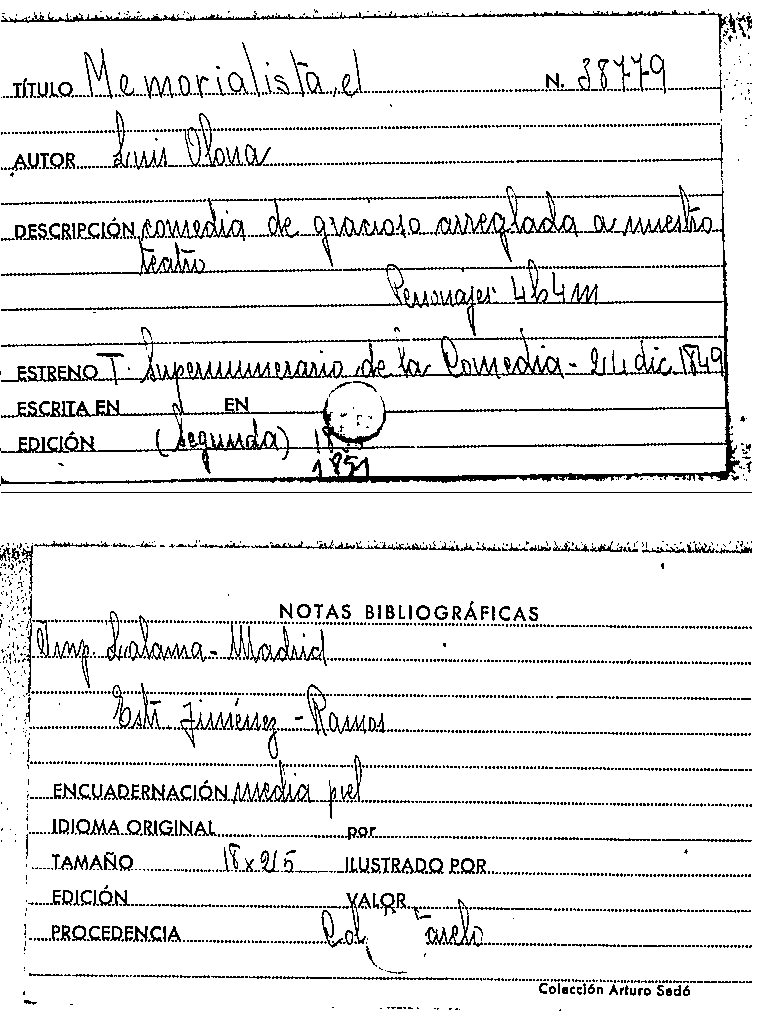 TÍTULO Memorialista, el N. 38779
AUTOR Luis Olona
DESCRIPCIÓN comedia de gracioso arreglada a nuestro
teatro
Personajes 4h 4m
ESTRENO T. Supernumerario de la Comedia - 24 dic. 1849
ESCRITA EN EN
EDICIÓN (Segunda)
1851
NOTAS BIBLIOGRÁFICAS
Imp. Lalama - Madrid
Estr. Jiménez - Ramos
ENCUADERNACIÓN media piel
IDIOMA ORIGINAL por
TAMAÑO 18 x 2/5 ILUSTRADO POR
EDICIÓN VALOR
PROCEDENCIA Col
Colección Arturo Sedó